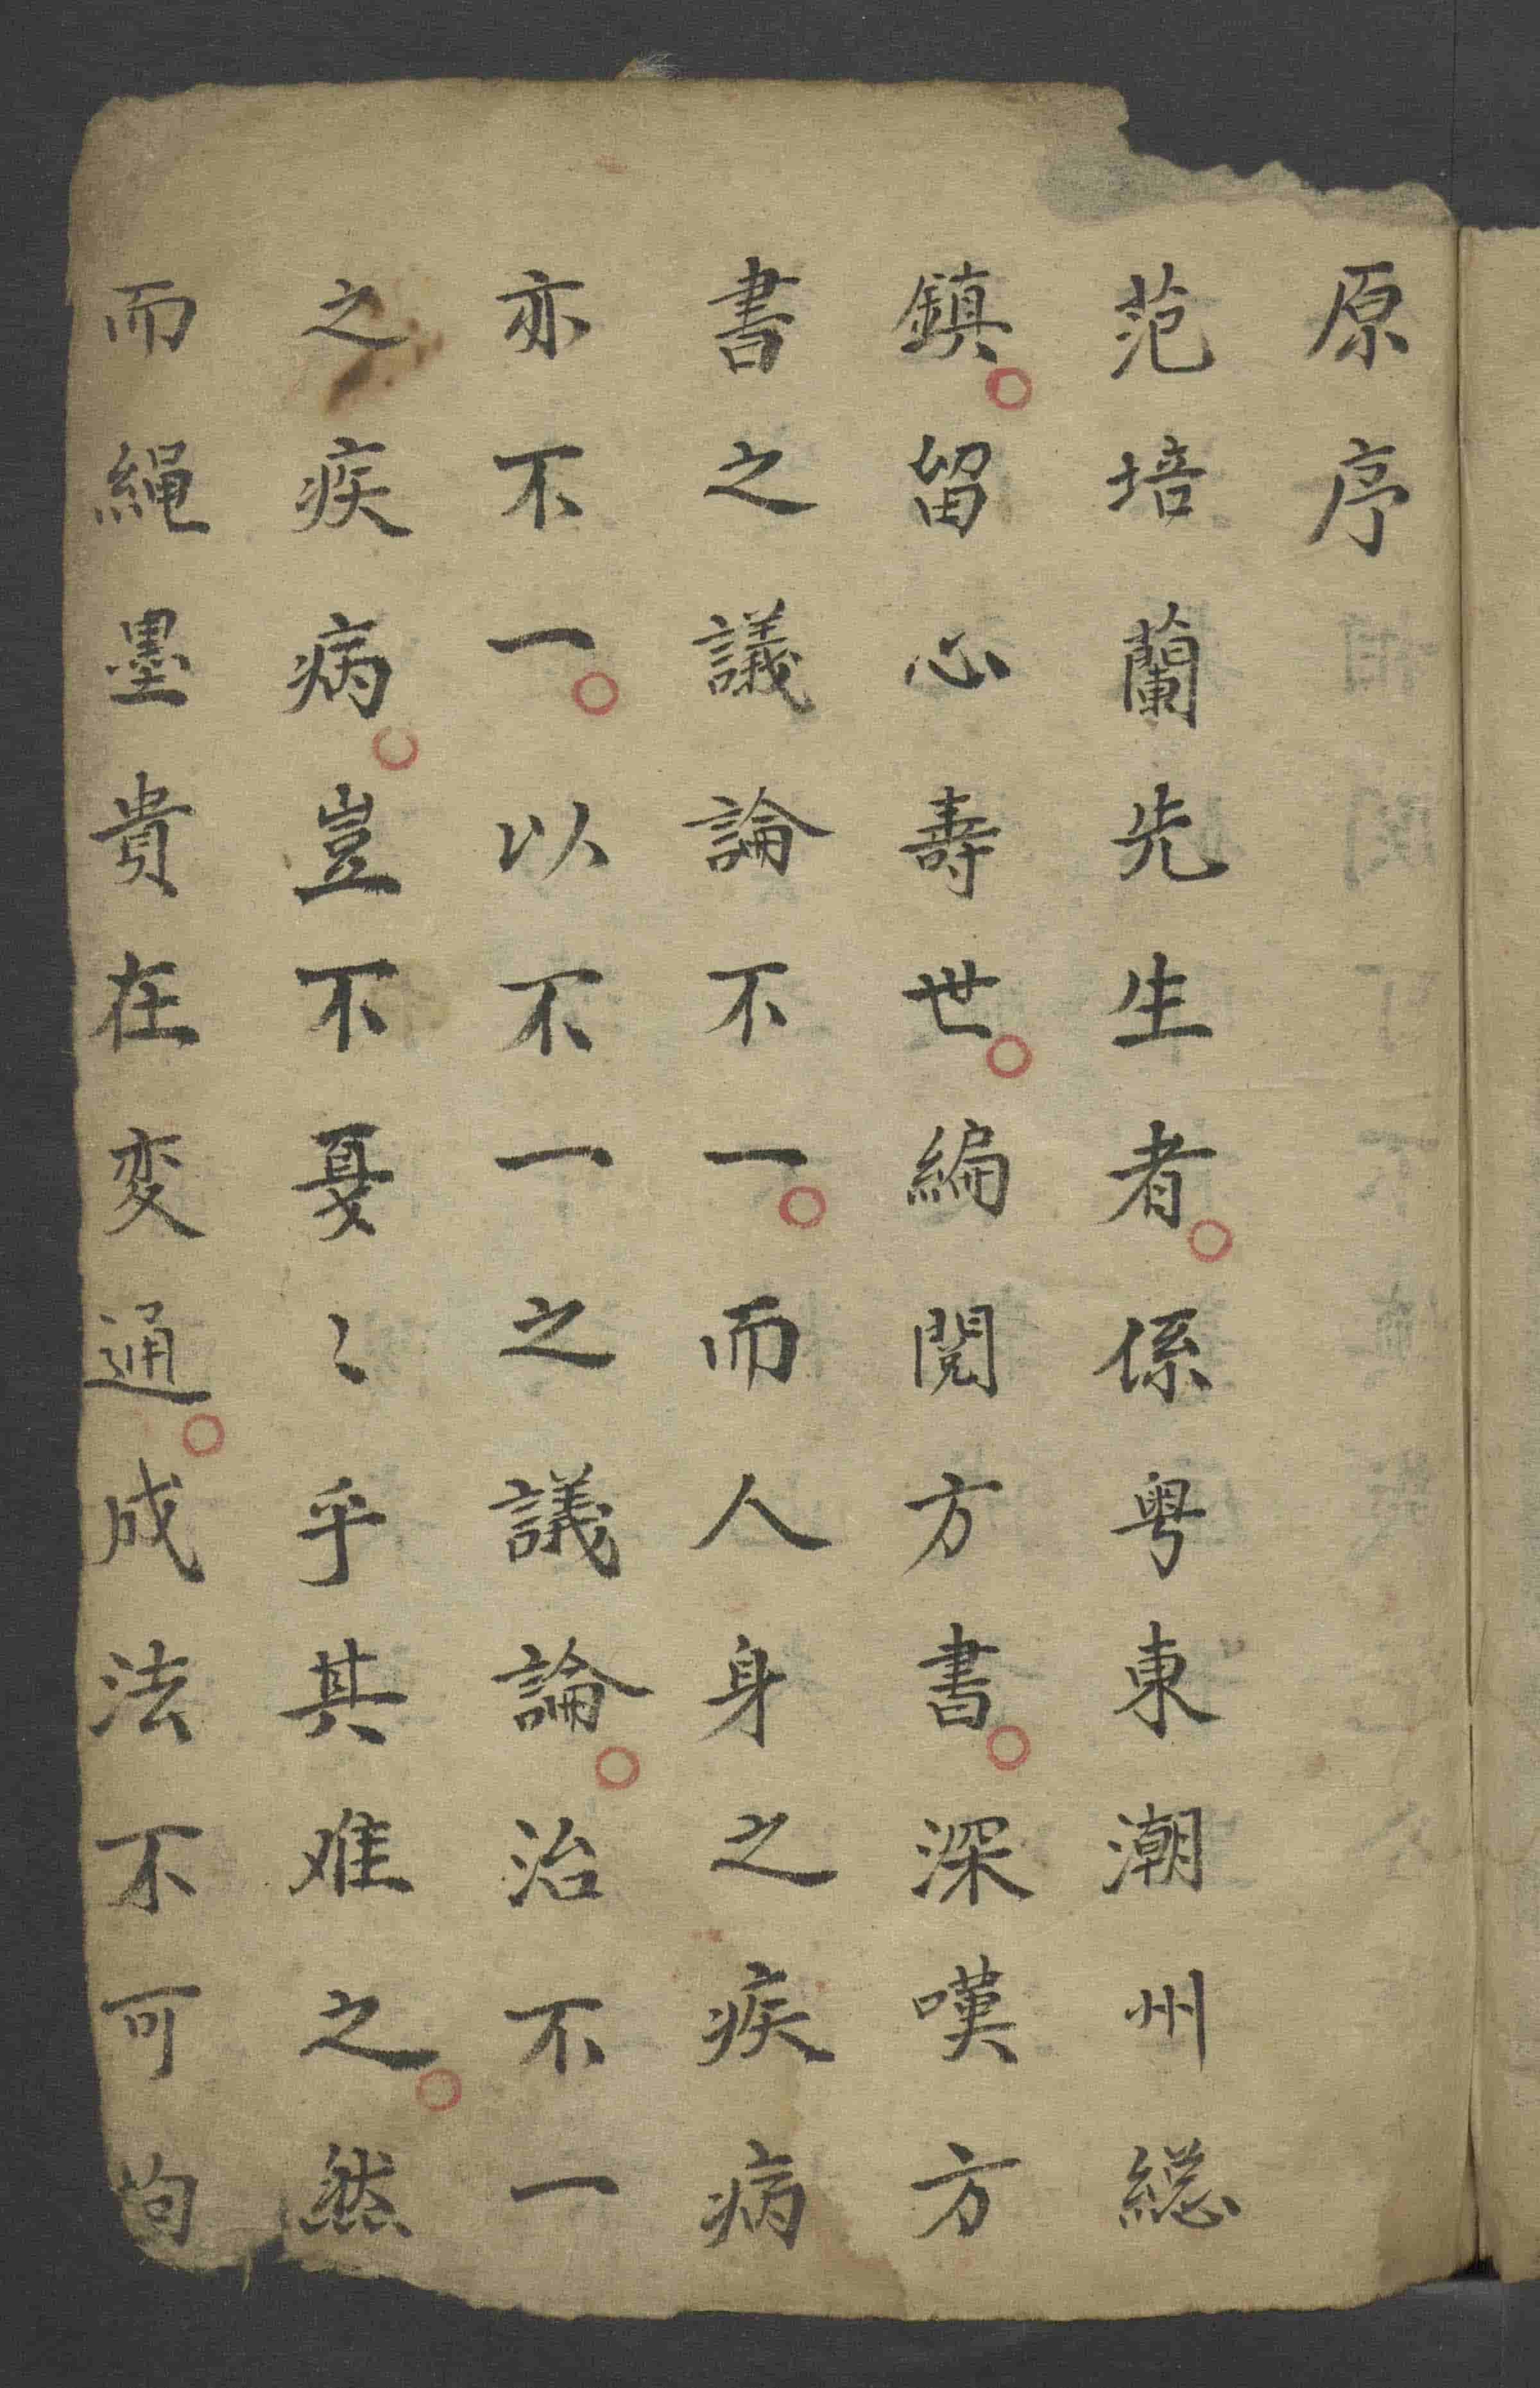 原序
范培蘭先生者。係粤東潮州総
鎮。留心壽世。編閱方書。深嘆方
書之議論不一。而人身之疾病
亦不一。以不一之議論。治不一
之疾病。豈不戛〻乎其难之。然
而繩墨貴在変通。成法不可拘